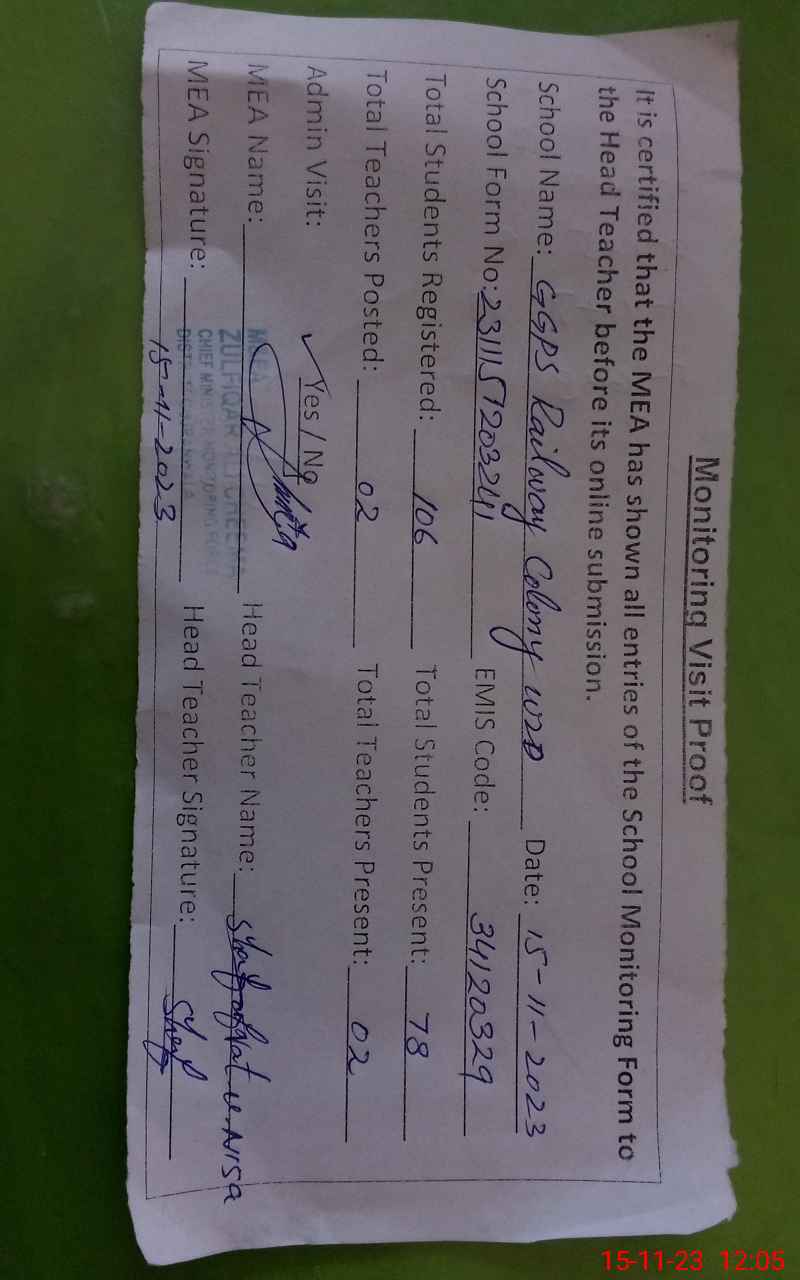 Monitoring Visit Proof
It is certified that the MEA has shown all entries of the School Monitoring Form to
the Head Teacher before its online submission.
School Name: GGPS Railway Colony WZD Date: 15-11-2023
School Form No: EMIS Code: 34120329
Total Students Registered: 106 Total Students Present: 78
Total Teachers Posted: 02 Total Teachers Present: 02
Admin Visit: ✓ Yes / No
MEA Name: Head Teacher Name:
MEA Signature: Head Teacher Signature:
ZULFIQAR ALI CHEEMA
CHIEF MINISTER MONITORING FORCE
15-11-2023
15-11-23 12:05